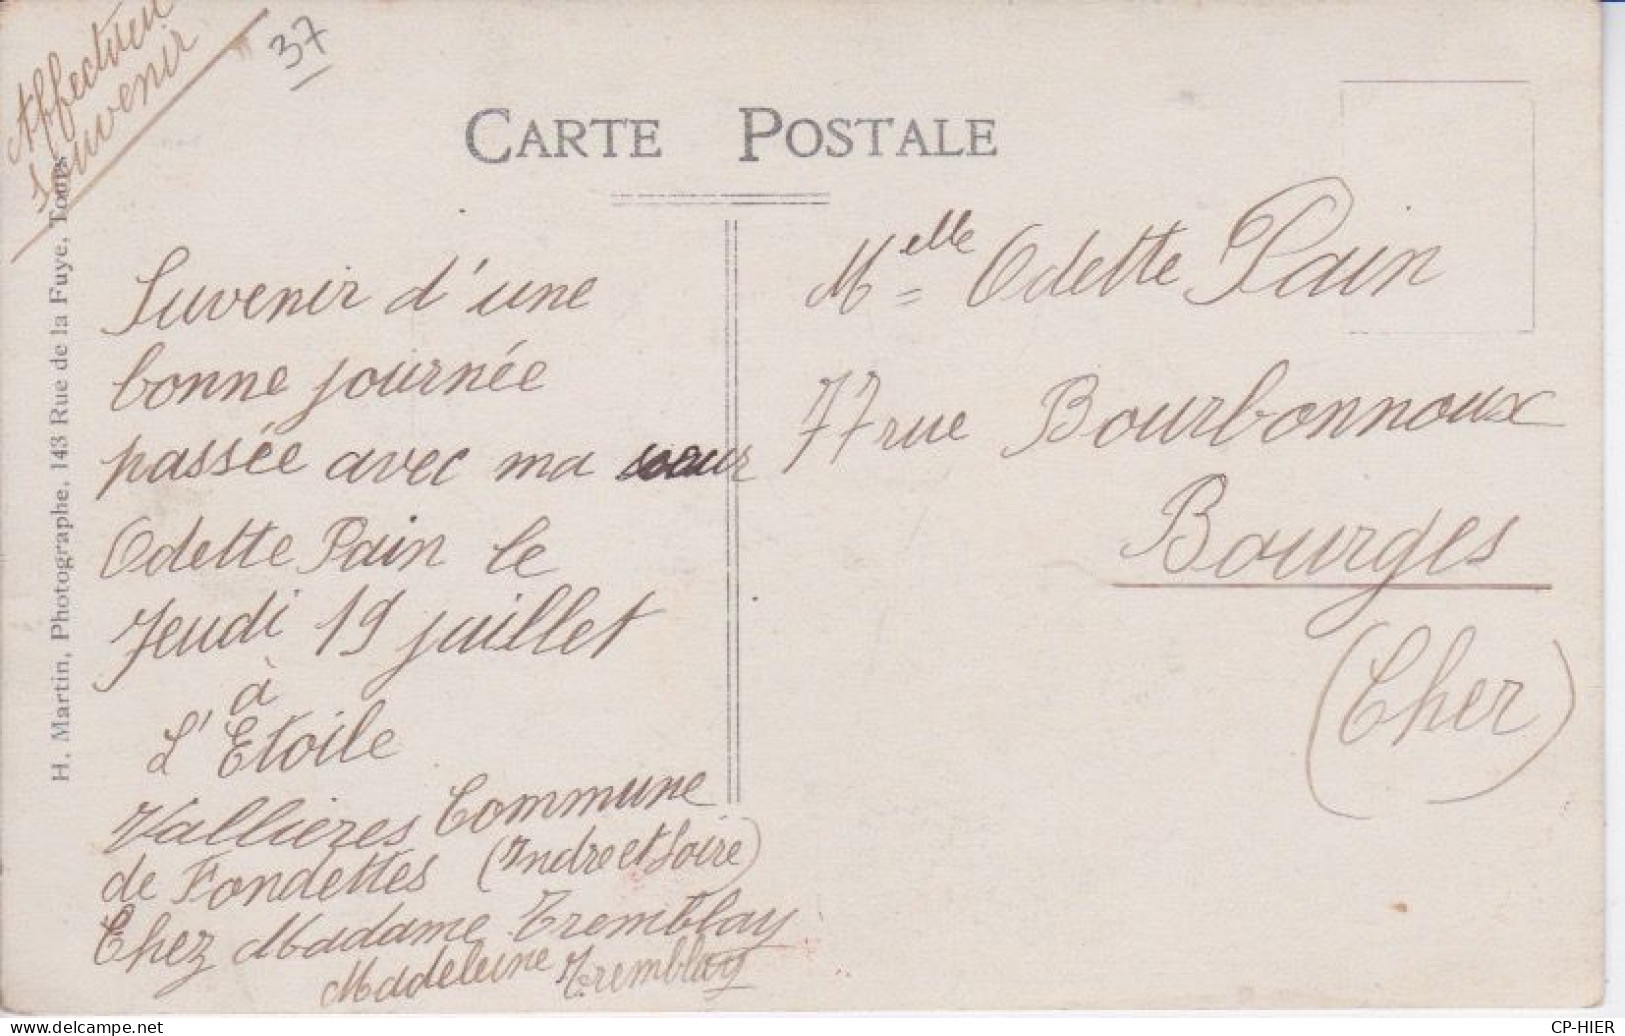 Affectueux
Souvenir
37
CARTE POSTALE
H. Martin, Photographe, 143 Rue de la Fuye, Tours
Suvenir d'une
bonne journée
passée avec ma soeur
Odette Pain le
Jeudi 19 juillet
à
L'Etoile
Vallieres Commune
de Fondettes (Indre et Loire)
Chez Madame Tremblay
Madeleine Tremblay
Melle Odette Pain
77 rue Bourbonnoux
Bourges
(Cher)
CP-HIER